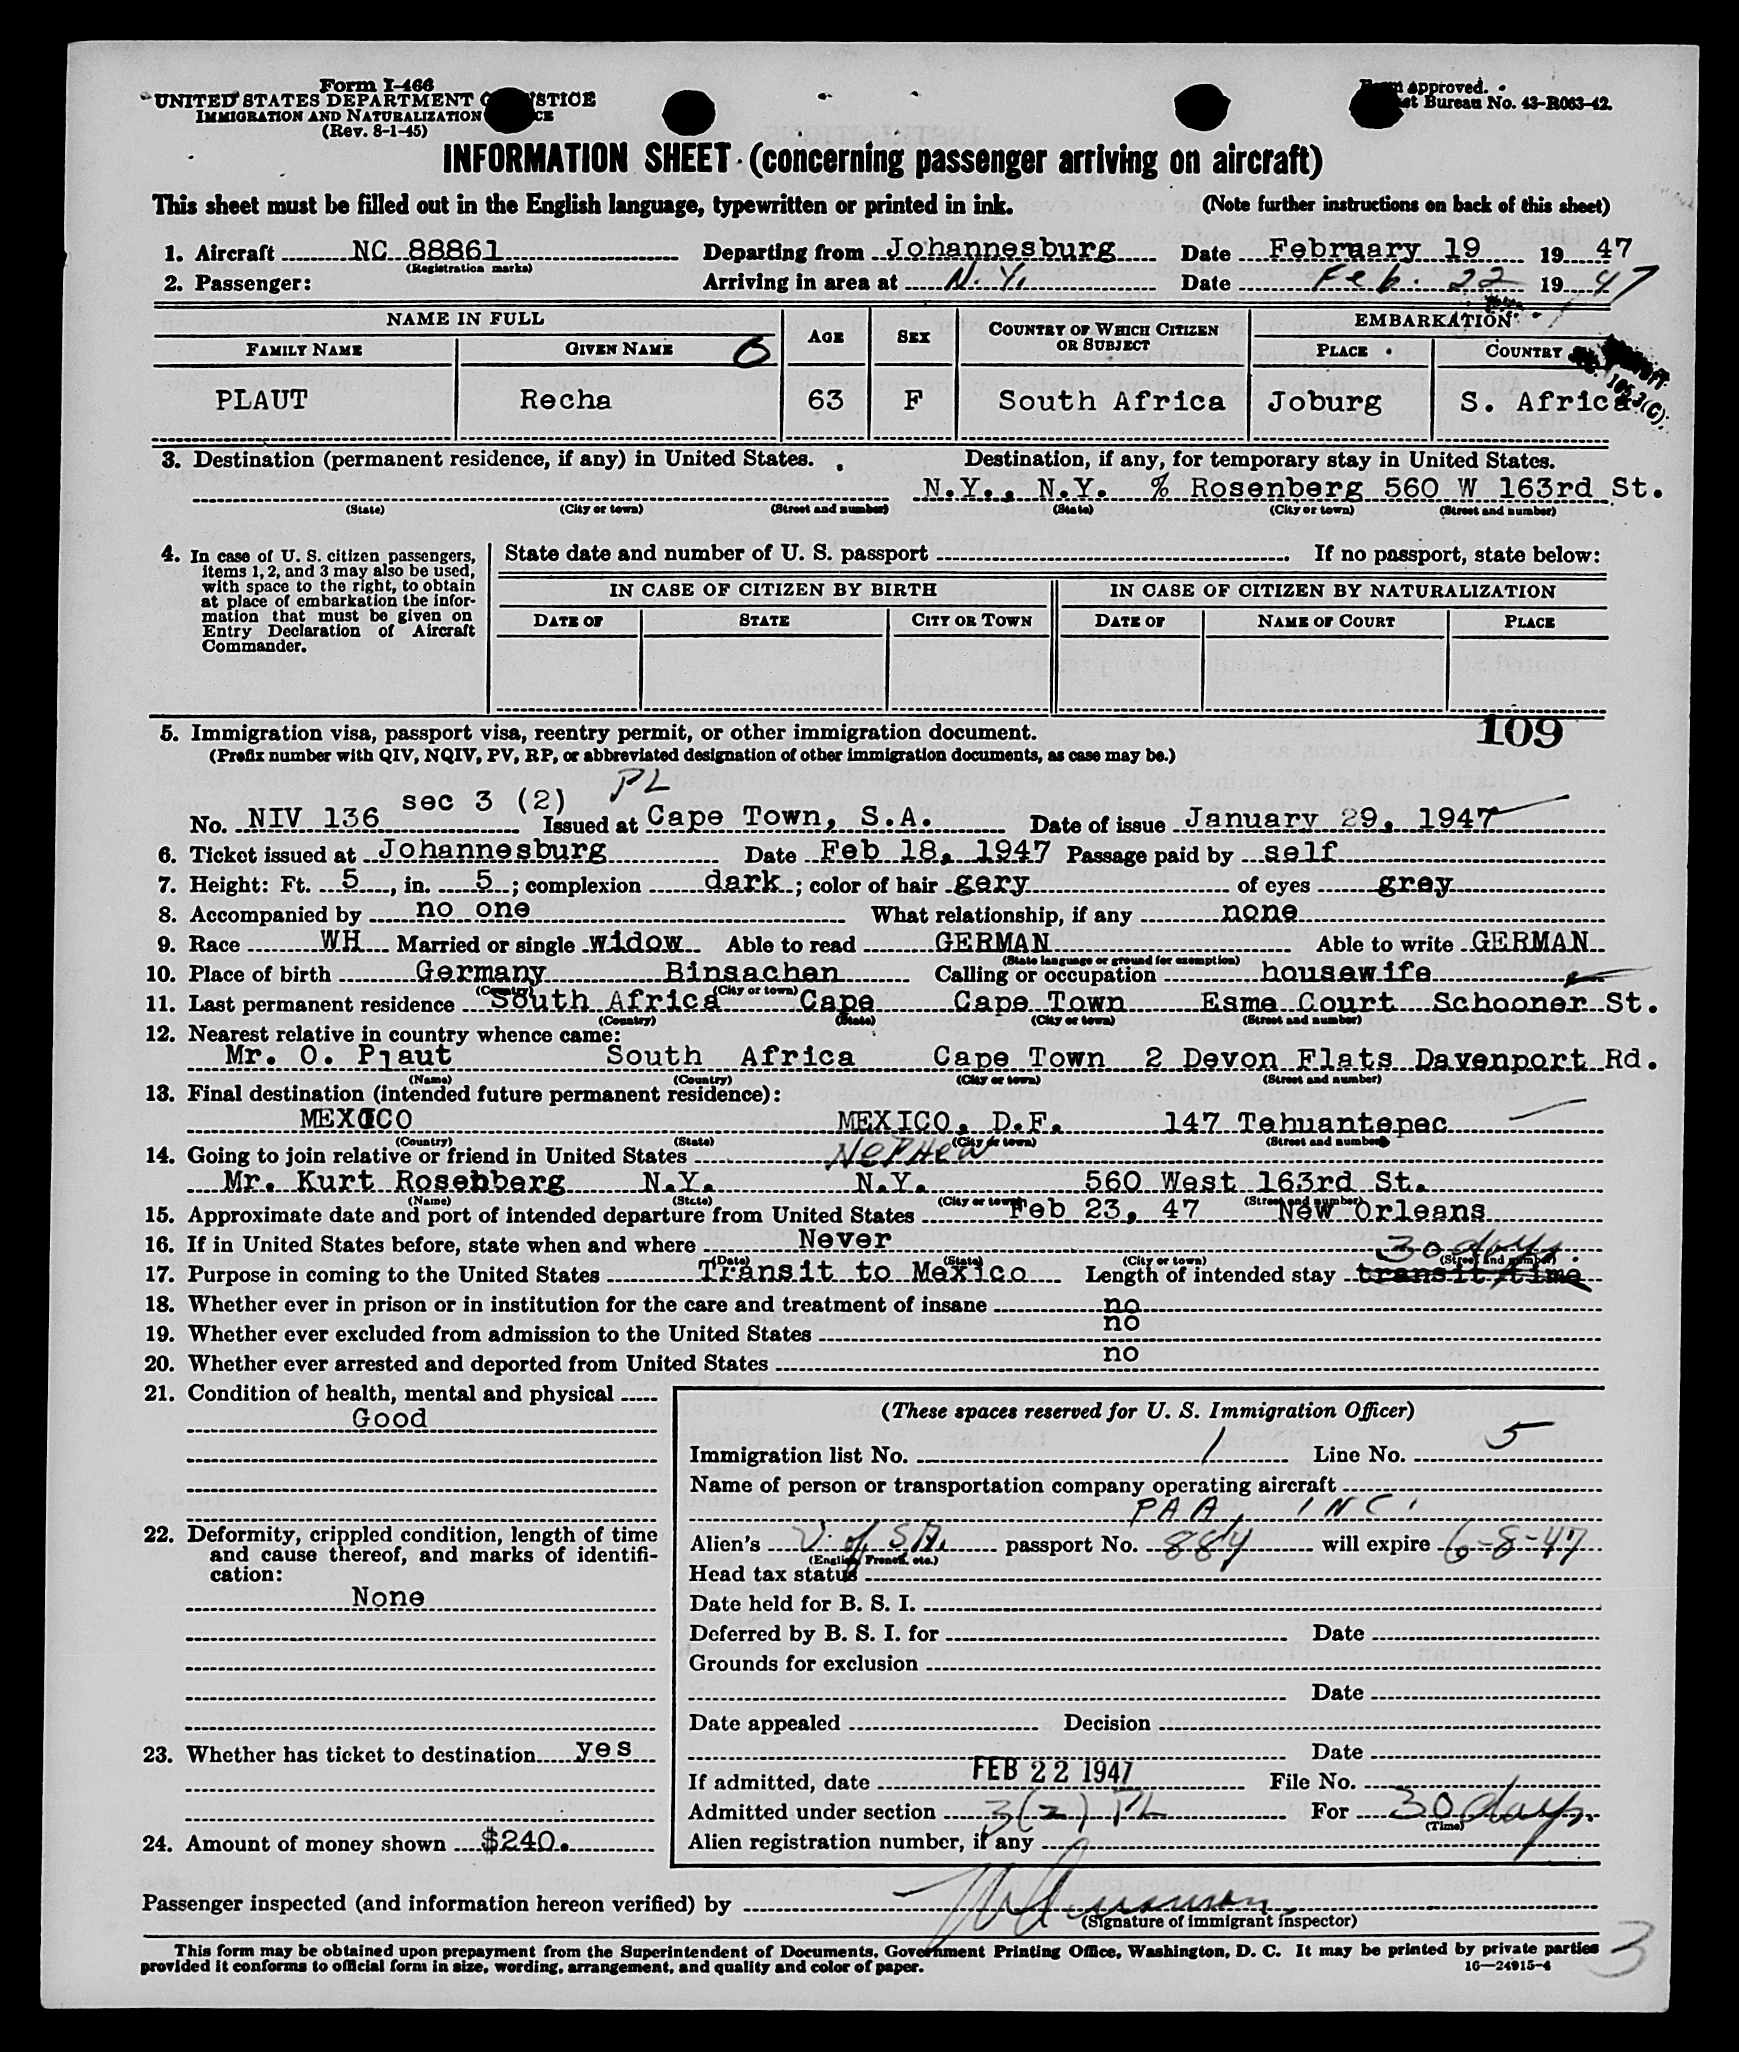 Form I-466
UNITED STATES DEPARTMENT STICE
IMMIGRATION AND NATURALIZATION CE
(Rev. 8-1-45)
approved.
Bureau No. 43-R063-42.
INFORMATION SHEET (concerning passenger arriving on aircraft)
This sheet must be filled out in the English language, typewritten or printed in ink. (Note further instructions on back of this sheet)
1. Aircraft NC 88861 Departing from Johannesburg Date February 19 19 47
(Registration marks)
2. Passenger: Arriving in area at N.Y. Date Feb. 22 19 47
NAME IN FULL AGE SEX COUNTRY OF WHICH CITIZEN OR SUBJECT EMBARKATION
FAMILY NAME GIVEN NAME PLACE COUNTRY
PLAUT Recha 63 F South Africa Joburg S. Africa
3. Destination (permanent residence, if any) in United States. Destination, if any, for temporary stay in United States.
N.Y., N.Y. % Rosenberg 560 W 163rd St.
(State) (City or town) (Street and number) (State) (City or town) (Street and number)
4. In case of U. S. citizen passengers, items 1, 2, and 3 may also be used, with space to the right, to obtain at place of embarkation the information that must be given on Entry Declaration of Aircraft Commander.
State date and number of U. S. passport . If no passport, state below:
IN CASE OF CITIZEN BY BIRTH IN CASE OF CITIZEN BY NATURALIZATION
DATE OF STATE CITY OR TOWN DATE OF NAME OF COURT PLACE
109
5. Immigration visa, passport visa, reentry permit, or other immigration document.
(Prefix number with QIV, NQIV, PV, RP, or abbreviated designation of other immigration documents, as case may be.)
sec 3 (2) PL
No. NIV 136 Issued at Cape Town, S.A. Date of issue January 29, 1947
6. Ticket issued at Johannesburg Date Feb 18, 1947 Passage paid by self
7. Height: Ft. 5, in. 5; complexion dark; color of hair gery of eyes grey
8. Accompanied by no one What relationship, if any none
9. Race WH Married or single widow Able to read GERMAN Able to write GERMAN
(State language or ground for exemption)
10. Place of birth Germany Binsachen Calling or occupation housewife
(Country) (City or town)
11. Last permanent residence South Africa Cape Cape Town Esme Court Schooner St.
(Country) (State) (City or town) (Street and number)
12. Nearest relative in country whence came:
Mr. O. Plaut South Africa Cape Town 2 Devon Flats Davenport Rd.
(Name) (Country) (City or town) (Street and number)
13. Final destination (intended future permanent residence):
MEXICO MEXICO, D.F. 147 Tehuantepec
(Country) (State) (City or town) (Street and number)
14. Going to join relative or friend in United States NEPHEW
Mr. Kurt Rosenberg N.Y. N.Y. 560 West 163rd St.
(Name) (State) (City or town) (Street and number)
15. Approximate date and port of intended departure from United States Feb 23, 47 New Orleans
16. If in United States before, state when and where Never
(Date) (State) (City or town) (Street and number)
30 days
17. Purpose in coming to the United States Transit to Mexico Length of intended stay transit time
18. Whether ever in prison or in institution for the care and treatment of insane no
19. Whether ever excluded from admission to the United States no
20. Whether ever arrested and deported from United States no
21. Condition of health, mental and physical
Good
22. Deformity, crippled condition, length of time and cause thereof, and marks of identification:
None
23. Whether has ticket to destination yes
24. Amount of money shown $240.
(These spaces reserved for U. S. Immigration Officer)
Immigration list No. 1 Line No. 5
Name of person or transportation company operating aircraft
PAA, INC.
Alien's U. of S.A. passport No. 884 will expire 6-8-47
(English, French, etc.)
Head tax status
Date held for B. S. I.
Deferred by B. S. I. for Date
Grounds for exclusion
Date
Date appealed Decision
Date
If admitted, date FEB 22 1947 File No.
Admitted under section 3(2) PL For 30 days.
(Time)
Alien registration number, if any
Passenger inspected (and information hereon verified) by
(Signature of immigrant inspector)
This form may be obtained upon prepayment from the Superintendent of Documents, Government Printing Office, Washington, D. C. It may be printed by private parties
provided it conforms to official form in size, wording, arrangement, and quality and color of paper. 16—24915-4
3